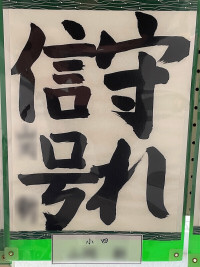 守れ
信号
小四